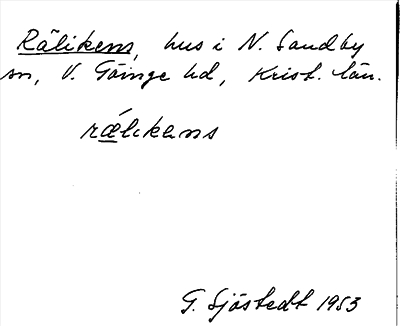 Rälikens, hus i N. Sandby
sn, V. Göinge hd, Krist. län.
rǽlikens
G. Sjöstedt 1953